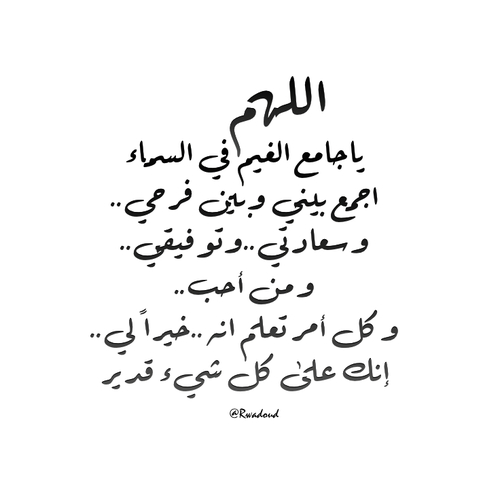 اللهم
ياجامع الغيم في السماء
اجمع بيني وبين فرحي..
وسعادتي..وتوفيقي..
ومن أحب..
وكل أمر تعلم انه..خيراً لي..
إنك على كل شيء قدير
@Rwadoud